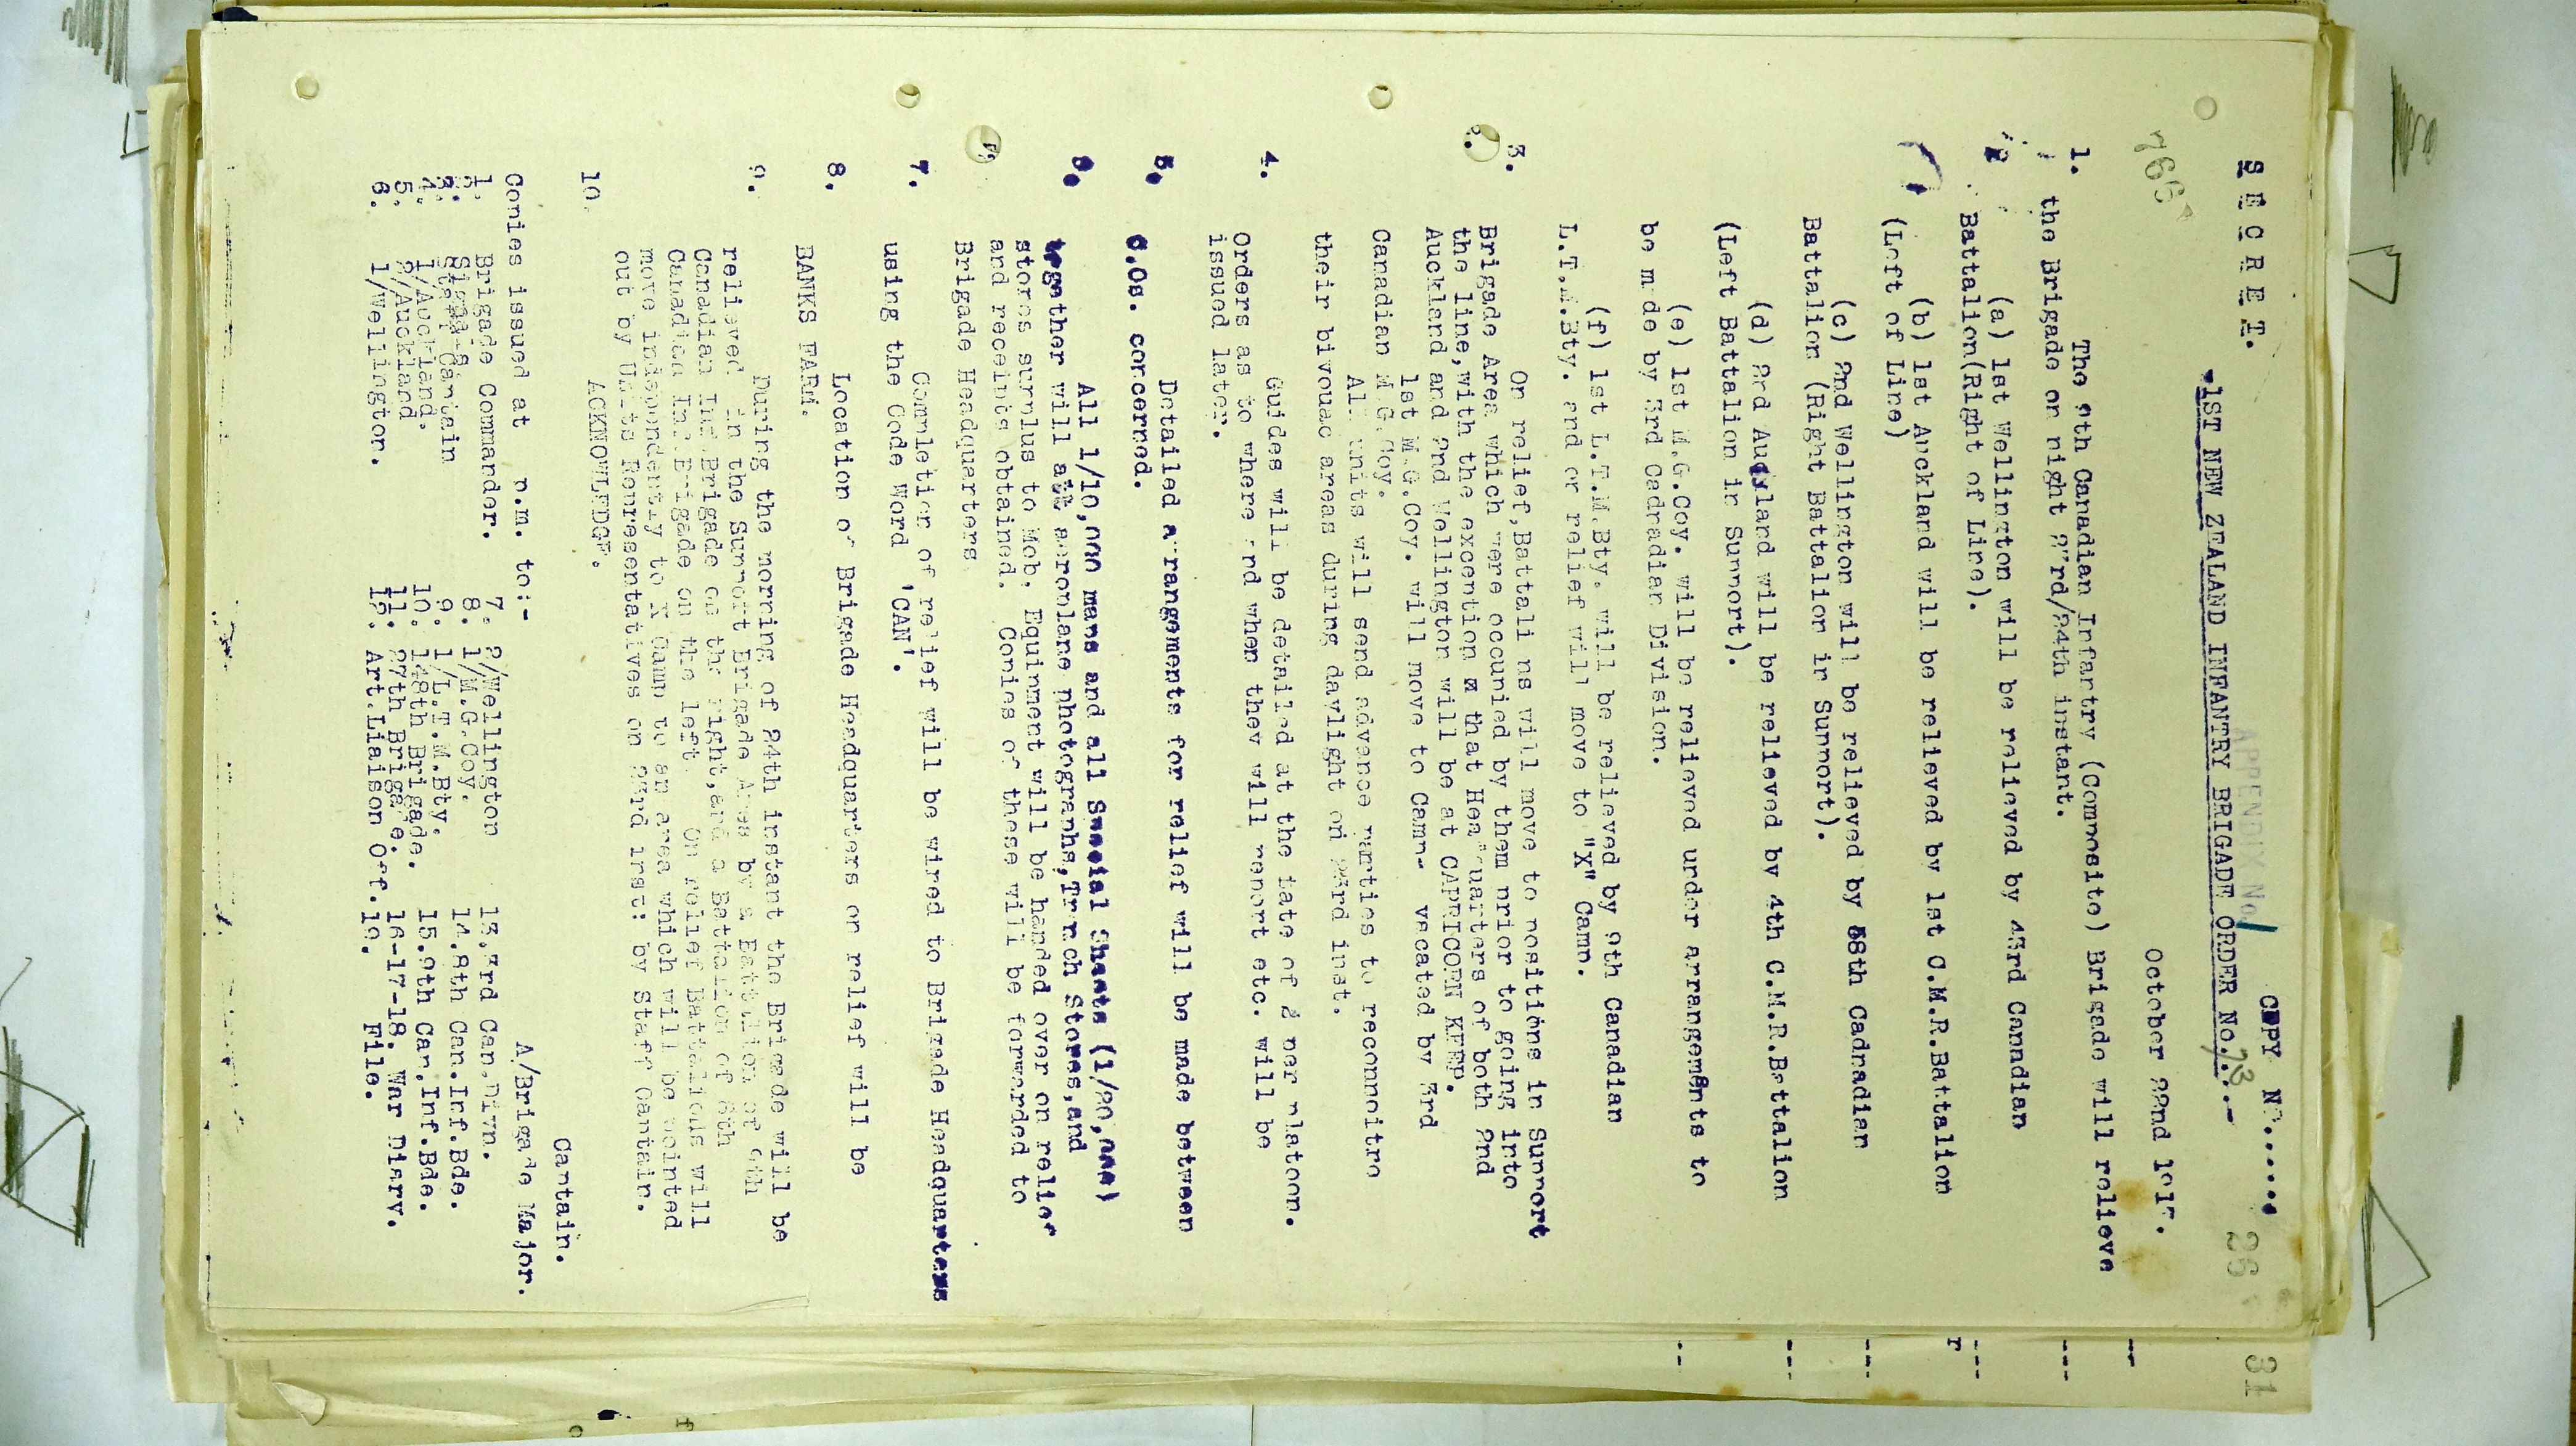 S E C R E T.
COPY No......
26
31
APPENDIX No. 1
1ST NEW ZEALAND INFANTRY BRIGADE ORDER No. 73.-
766
October 22nd 1917.
1. The 8th Canadian Infantry (Composite) Brigade will relieve
the Brigade on night 23rd/24th instant.
(a) 1st Wellington will be relieved by 43rd Canadian
Battalion(Right of Line).
(b) 1st Auckland will be relieved by 1st C.M.R.Battalion
(Left of Line)
(c) 2nd Wellington will be relieved by 58th Cadnadian
Battalion (Right Battalion in Support).
(d) 2nd Auckland will be relieved by 4th C.M.R.Battalion
(Left Battalion in Support).
(e) 1st M.G.Coy. will be relieved under arrangements to
be made by 3rd Cadnadian Division.
(f) 1st L.T.M.Bty. will be relieved by 9th Canadian
L.T.M.Bty. and on relief will move to "X" Camp.
3. On relief,Battali ns will move to positions in Support
Brigade Area which were occupied by them prior to going into
the line,with the exception that Headquarters of both 2nd
Auckland and 2nd Wellington will be at CAPRICORN KEEP.
1st M.G.Coy. will move to Camp- vacated by 3rd
Canadian M.G.Coy.
All units will send advance parties to reconnoitre
their bivouac areas during daylight on 23rd inst.
4. Guides will be detailed at the rate of 2 per platoon.
Orders as to where and when they will report etc. will be
issued later.
5. Detailed arrangements for relief will be made between
C.Os. concerned.
6. All 1/10,000 maps and all Special Sheets (1/20,000)
together will all aeroplane photographs,Trench Stores,and
stores surplus to Mob. Equipment will be handed over on relief
and receipts obtained. Copies of these will be forwarded to
Brigade Headquarters.
7. Completion of relief will be wired to Brigade Headquarters
using the Code Word 'CAN'.
8. Location of Brigade Headquarters on relief will be
BANKS FARM.
9. During the morning of 24th instant the Brigade will be
relieved in the Support Brigade Area by a Battalion of 9th
Canadian Inf.Brigade on the right,and a Battalion of 8th
Canadian Inf.Brigade on the left. On relief Battalions will
move independently to X Camp to an area which will be pointed
out by Units Representatives on 23rd inst: by Staff Captain.
10. ACKNOWLEDGE.
Captain.
A/Brigade Major.
Copies issued at p.m. to:-
1. Brigade Commander.
2. Signals
3. Staff Captain
4. 1/Auckland.
5. 2/Auckland
6. 1/Wellington.
7. 2/Wellington
8. 1/M.G.Coy.
9. 1/L.T.M.Bty.
10. 148th Brigade.
11. 27th Brigade.
12. Art.Liaison Off.
13.3rd Can.Divn.
14.8th Can.Inf.Bde.
15.9th Can.Inf.Bde.
16-17-18. War Diary.
19. File.